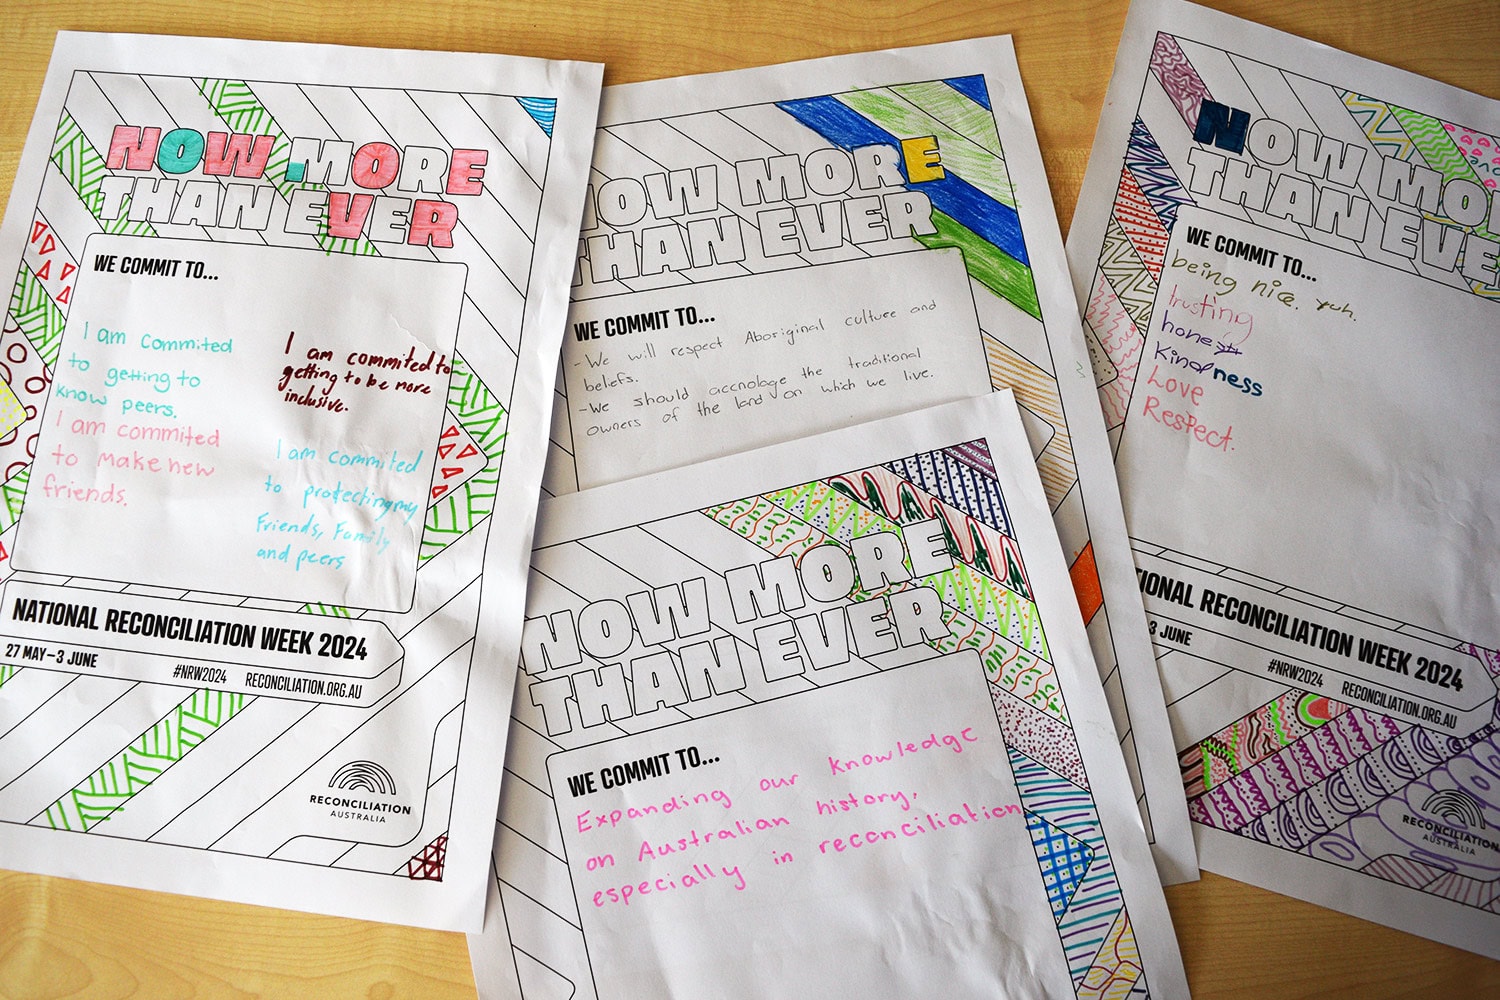 NOW MORE
THAN EVER
WE COMMIT TO...
I am commited
to getting to
know peers.
I am commited
to make new
friends.
I am commited to
getting to be more
inclusive.
I am commited
to protecting my
Friends, Family
and peers
NATIONAL RECONCILIATION WEEK 2024
27 MAY–3 JUNE
#NRW2024 RECONCILIATION.ORG.AU
RECONCILIATION
AUSTRALIA
NOW MORE
THAN EVER
WE COMMIT TO...
- We will respect Aboriginal culture and
beliefs.
- We should accnolage the traditional
owners of the land on which we live.
NOW MORE
THAN EVER
WE COMMIT TO...
Expanding our knowledge
on Australian history,
especially in reconciliation
NOW MO
THAN EVE
WE COMMIT TO...
being nice. yuh.
trusting
honesty
kindness
Love
Respect.
IONAL RECONCILIATION WEEK 2024
3 JUNE
#NRW2024 RECONCILIATION.ORG.AU
RECONCILIATION
AUSTRALIA